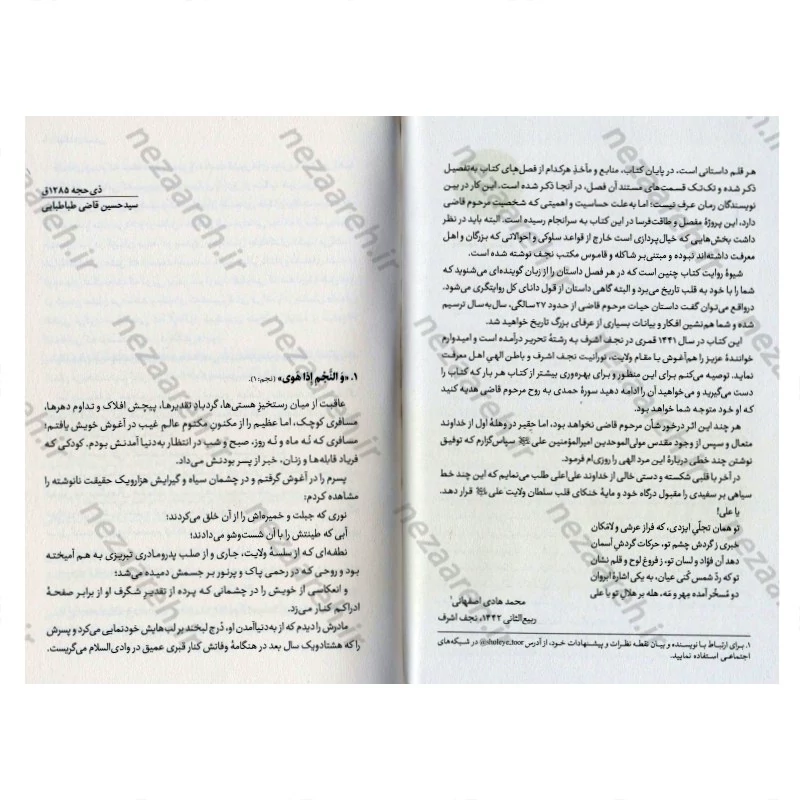 هر قلم داستانی است، در پایان کتاب، منابع و مآخذِ هرکدام از فصل‌های کتاب به‌تفصیل
ذکر شده و تک‌تک قسمت‌های مستند آن فصل، در آنجا ذکر شده است. این کار در بین
نویسندگان رمان عرف نیست؛ اما به‌علت حساسیت و اهمیتی که شخصیت مرحوم قاضی
دارد، این پروژهٔ مفصل و طاقت‌فرسا در این کتاب به سرانجام رسیده است. البته باید در نظر
داشت بخش‌هایی که خیال‌پردازی است خارج از قواعد سلوکی و احوالاتی که بزرگان و اهل
معرفت داشته‌اند نبوده و مبتنی‌بر شاکله و قاموس مکتب نجف نوشته شده است.
شیوهٔ روایت کتاب چنین است که در هر فصل داستان را از زبان گوینده‌ای می‌شنوید که
شما را با خود به قلب تاریخ می‌برد و البته گاهی داستان از قول دانای کل روایتگری می‌شود.
درواقع می‌توان گفت داستان حیات مرحوم قاضی از حدود ۲۷سالگی، سال‌به‌سال ترسیم
شده و شما هم‌نشین افکار و بیانات بسیاری از عرفای بزرگ تاریخ خواهید شد.
این کتاب در سال ۱۴۴۱ قمری در نجف اشرف به رشتهٔ تحریر درآمده است و امیدوارم
خوانندهٔ عزیز را هم‌آغوش با مقام ولایت، نورانیت نجف اشرف و باطن الهی اهل معرفت
نماید. توصیه می‌کنم برای این منظور و برای بهره‌وری بیشتر از کتاب هر بار که کتاب را
دست می‌گیرید و می‌خواهید آن را ادامه دهید سورهٔ حمدی به روح مرحوم قاضی هدیه کنید
که او خود متوجه شما خواهد بود.
هر چند این اثر درخور شأن مرحوم قاضی نخواهد بود، اما حقیر در وهلهٔ اول از خداوند
متعال و سپس از وجود مقدس مولی‌الموحدین امیرالمؤمنین علی سپاس‌گزارم که توفیق
نوشتن چند خطی دربارهٔ این مرد الهی را روزی‌ام فرمود.
در آخر با قلبی شکسته و دستی خالی از خداوند علی‌اعلی طلب می‌نمایم که این چند خط
سیاهی بر سفیدی را مقبول درگاه خود و مایهٔ خنکای قلب سلطان ولایت علی قرار دهد.
یا علی!
تو همان تجلّیِ ایزدی، که فراز عرشی و لامکان
خبری ز گردش چشم تو، حرکات گردش آسمان
دهد آن فؤاد و لسان تو، ز فروغ لوح و قلم نشان
تو که ردّ شمس کُنی عیان، به یکی اشارهٔ ابروان
دو مُسخّر آمده مِهر و مَه، هله بر هلال تو یا علی
محمد هادی اصفهانی۱
ربیع‌الثانی ۱۴۴۲، نجف اشرف
۱. برای ارتباط با نویسنده و بیان نقطه نظرات و پیشنهادات خود، از آدرس sholeye.toor@ در شبکه‌های
اجتماعی استفاده نمایید.
ذی‌حجه ۱۲۸۵ق
سیدحسین قاضی طباطبایی
۱. «وَ النَّجْمِ إِذا هَوی» (نجم:۱).
عاقبت از میان رستخیز هستی‌ها، گردبادِ تقدیرها، پیچش افلاک و تداوم دهرها،
مسافری کوچک، اما عظیم را از مکنونِ مکتومِ عالمِ غیب در آغوش خویش یافتم؛
مسافری که نُه ماه و نُه روز، صبح و شب در انتظار به‌دنیا آمدنش بودم. کودکی که
فریاد قابله‌ها و زنان، خبر از پسر بودنش می‌داد.
پسرم را در آغوش گرفتم و در چشمان سیاه و گیرایش هزارویک حقیقت نانوشته را
مشاهده کردم:
نوری که جبلت و خمیره‌اش را از آن خلق می‌کردند؛
آبی که طینتش را با آن شست‌وشو می‌دادند؛
نطفه‌ای که از سلسهٔ ولایت، جاری و از صلب پدرومادری تبریزی به هم آمیخته
بود و روحی که در رحمی پاک و پرنور بر جسمش دمیده می‌شد؛
و انعکاسی از خویش را در چشمانی که پرده از تقدیر شگرف او از برابر صفحهٔ
ادراکم کنار می‌زد.
مادرش را دیدم که از به‌دنیاآمدن او، دُرج لبخند بر لب‌هایش خودنمایی می‌کرد و پسرش
را که هشتادویک سال بعد در هنگامهٔ وفاتش کنار قبری عمیق در وادی‌السلام می‌گریست.
nezaareh.ir